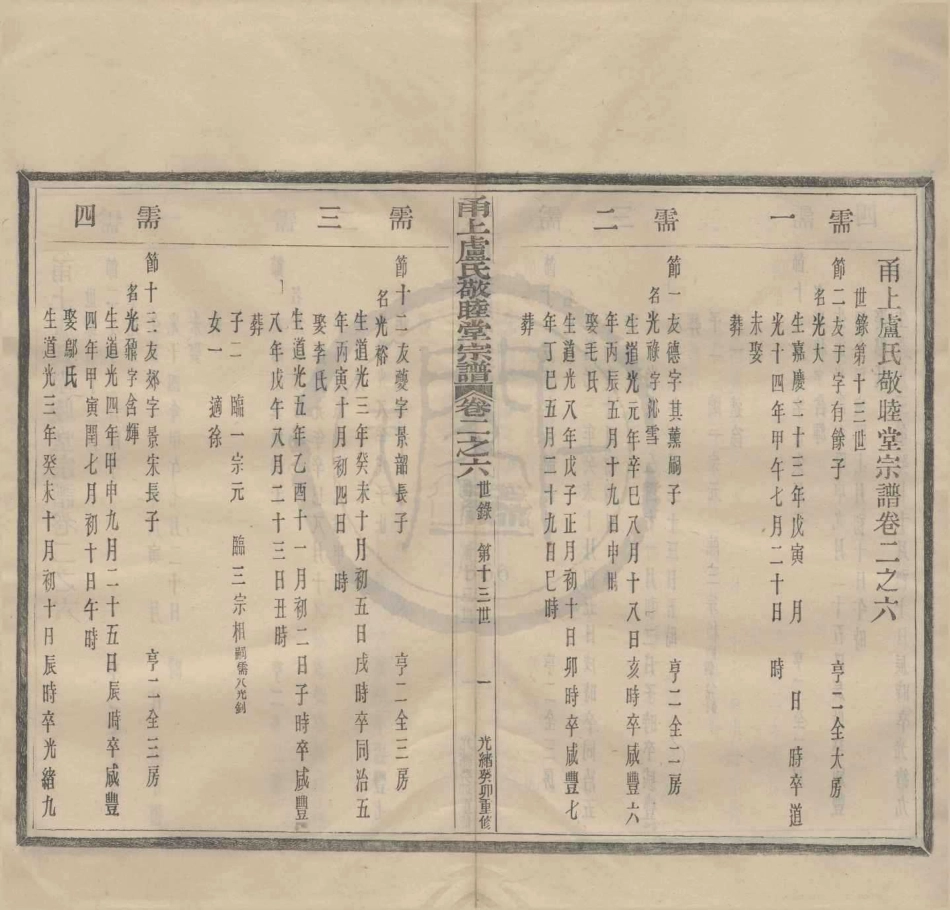 甬上盧氏敬睦堂宗譜卷二之六
世錄第十三世
需一
節二友于字有餘子 亨二全大房
名光大
生嘉慶二十三年戊寅 月 日 時卒道
光十四年甲午七月二十日 時
未娶
葬
需二
節一友德字其薰嗣子 亨二全二房
名光祿字沁雪
生道光元年辛巳八月十八日亥時卒咸豐六
年丙辰五月十九日申時
娶毛氏
生道光八年戊子正月初十日卯時卒咸豐七
年丁巳五月二十九日巳時
葬
甬上盧氏敬睦堂宗譜 卷二之六 世錄 第十三世 一 光緒癸卯重修
需三
節十二友夔字景韶長子 亨二全三房
名光裕
生道光三年癸未十月初五日戌時卒同治五
年丙寅十月初四日 時
娶李氏
生道光五年乙酉十一月初二日子時卒咸豐
八年戊午八月二十三日丑時
葬
子二 臨一宗元 臨三宗相嗣需八光釗
女一 適徐
需四
節十三友郊字景宋長子 亨二全三房
名光 字含輝
生道光四年甲申九月二十五日辰時卒咸豐
四年甲寅閏七月初十日午時
娶鄔氏
生道光三年癸未十月初十日辰時卒光緒九